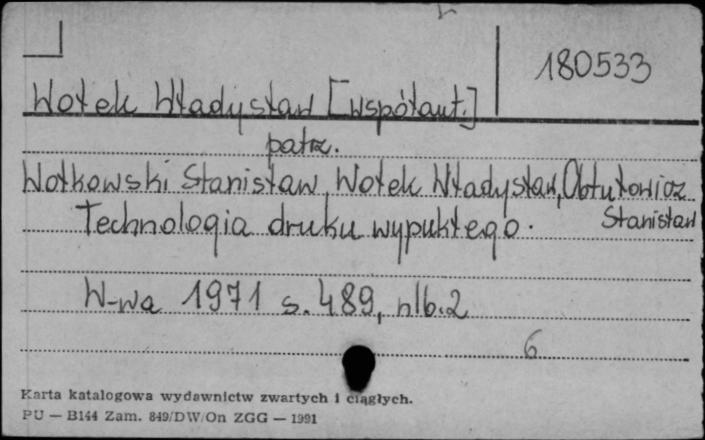 180533
Wołek Władysław [współaut.]
patrz.
Wołkowski Stanisław, Wołek Władysław, Obtułowicz
Stanisław
Technologia druku wypukłego.
W-wa 1971 s. 489, nlb. 2
6
Karta katalogowa wydawnictw zwartych i ciągłych.
PU — B144 Zam. 849/DW/On ZGG — 1991